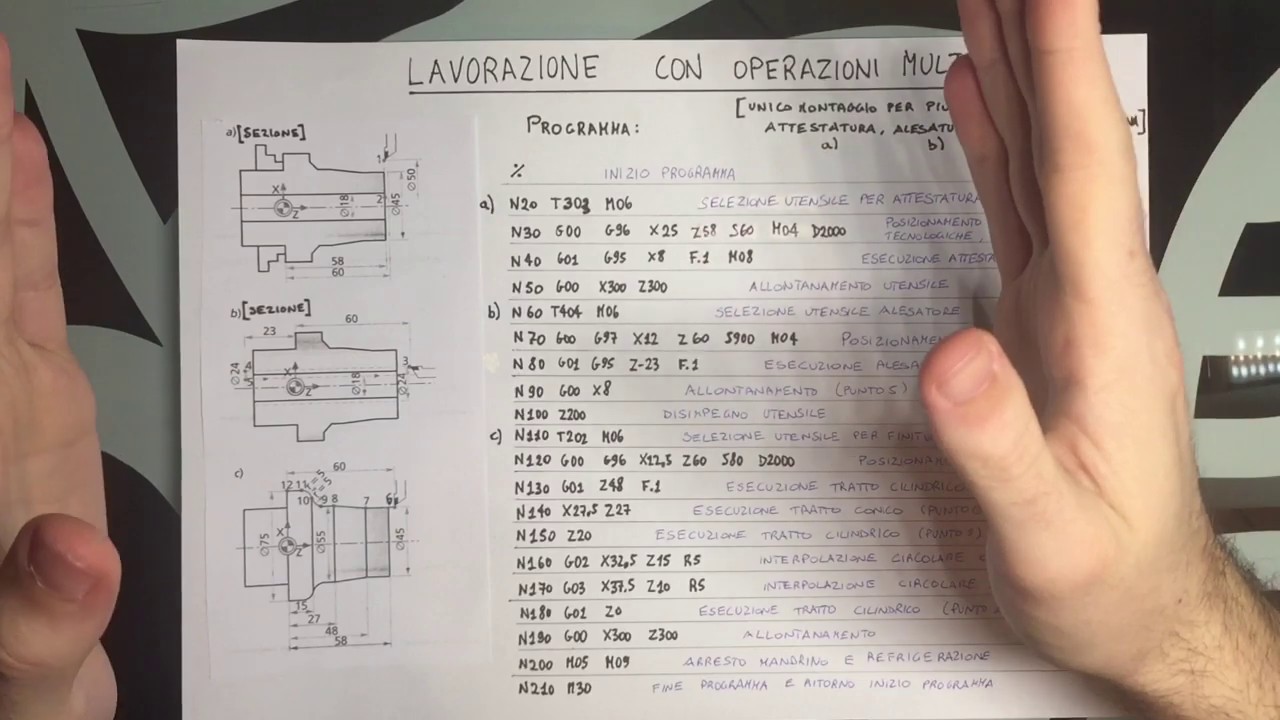 LAVORAZIONE CON OPERAZIONI
[UNICO MONTAGGIO PER
ATTESTATURA,
a) b)
PROGRAMMA:
% INIZIO PROGRAMMA
a) N20 T303 M06 SELEZIONE UTENSILE PER ATTESTATURA
N30 G00 G96 X25 Z58 S60 M04 D2000 POSIZIONAMENTO
TECNOLOGICHE,
N40 G01 G95 X8 F.1 M08 ESECUZIONE
N50 G00 X300 Z300 ALLONTANAMENTO UTENSILE
b) N60 T404 M06 SELEZIONE UTENSILE ALESATORE
N70 G00 G97 X12 Z60 S900 M04
N80 G01 G95 Z-23 F.1 ESECUZIONE
N90 G00 X8 ALLONTANAMENTO (PUNTO 5)
N100 Z200 DISIMPEGNO UTENSILE
c) N110 T202 M06 SELEZIONE UTENSILE PER
N120 G00 G96 X12,5 Z60 S80 D2000
N130 G01 Z48 F.1 ESECUZIONE TRATTO CILINDRICO
N140 X27,5 Z27 ESECUZIONE TRATTO CONICO (PUNTO
N150 Z20 ESECUZIONE TRATTO CILINDRICO (PUNTO 9)
N160 G02 X32,5 Z15 R5 INTERPOLAZIONE CIRCOLARE
N170 G03 X37,5 Z10 R5 INTERPOLAZIONE CIRCOLARE
N180 G01 Z0 ESECUZIONE TRATTO CILINDRICO (PUNTO
N190 G00 X300 Z300 ALLONTANAMENTO
N200 M05 M09 ARRESTO MANDRINO E REFRIGERAZIONE
N210 M30 FINE PROGRAMMA E RITORNO INIZIO PROGRAMMA
a) [SEZIONE]
1
Ø50
X
2
Ø18
Ø45
Z
58
60
b) [SEZIONE]
60
23
3
Ø24
4
5
X
Z
Ø18
Ø24
c)
60
12 11
r=5
r=5
10 9 8 7 6
Ø75
X
Z
Ø55
Ø45
15
27
48
58